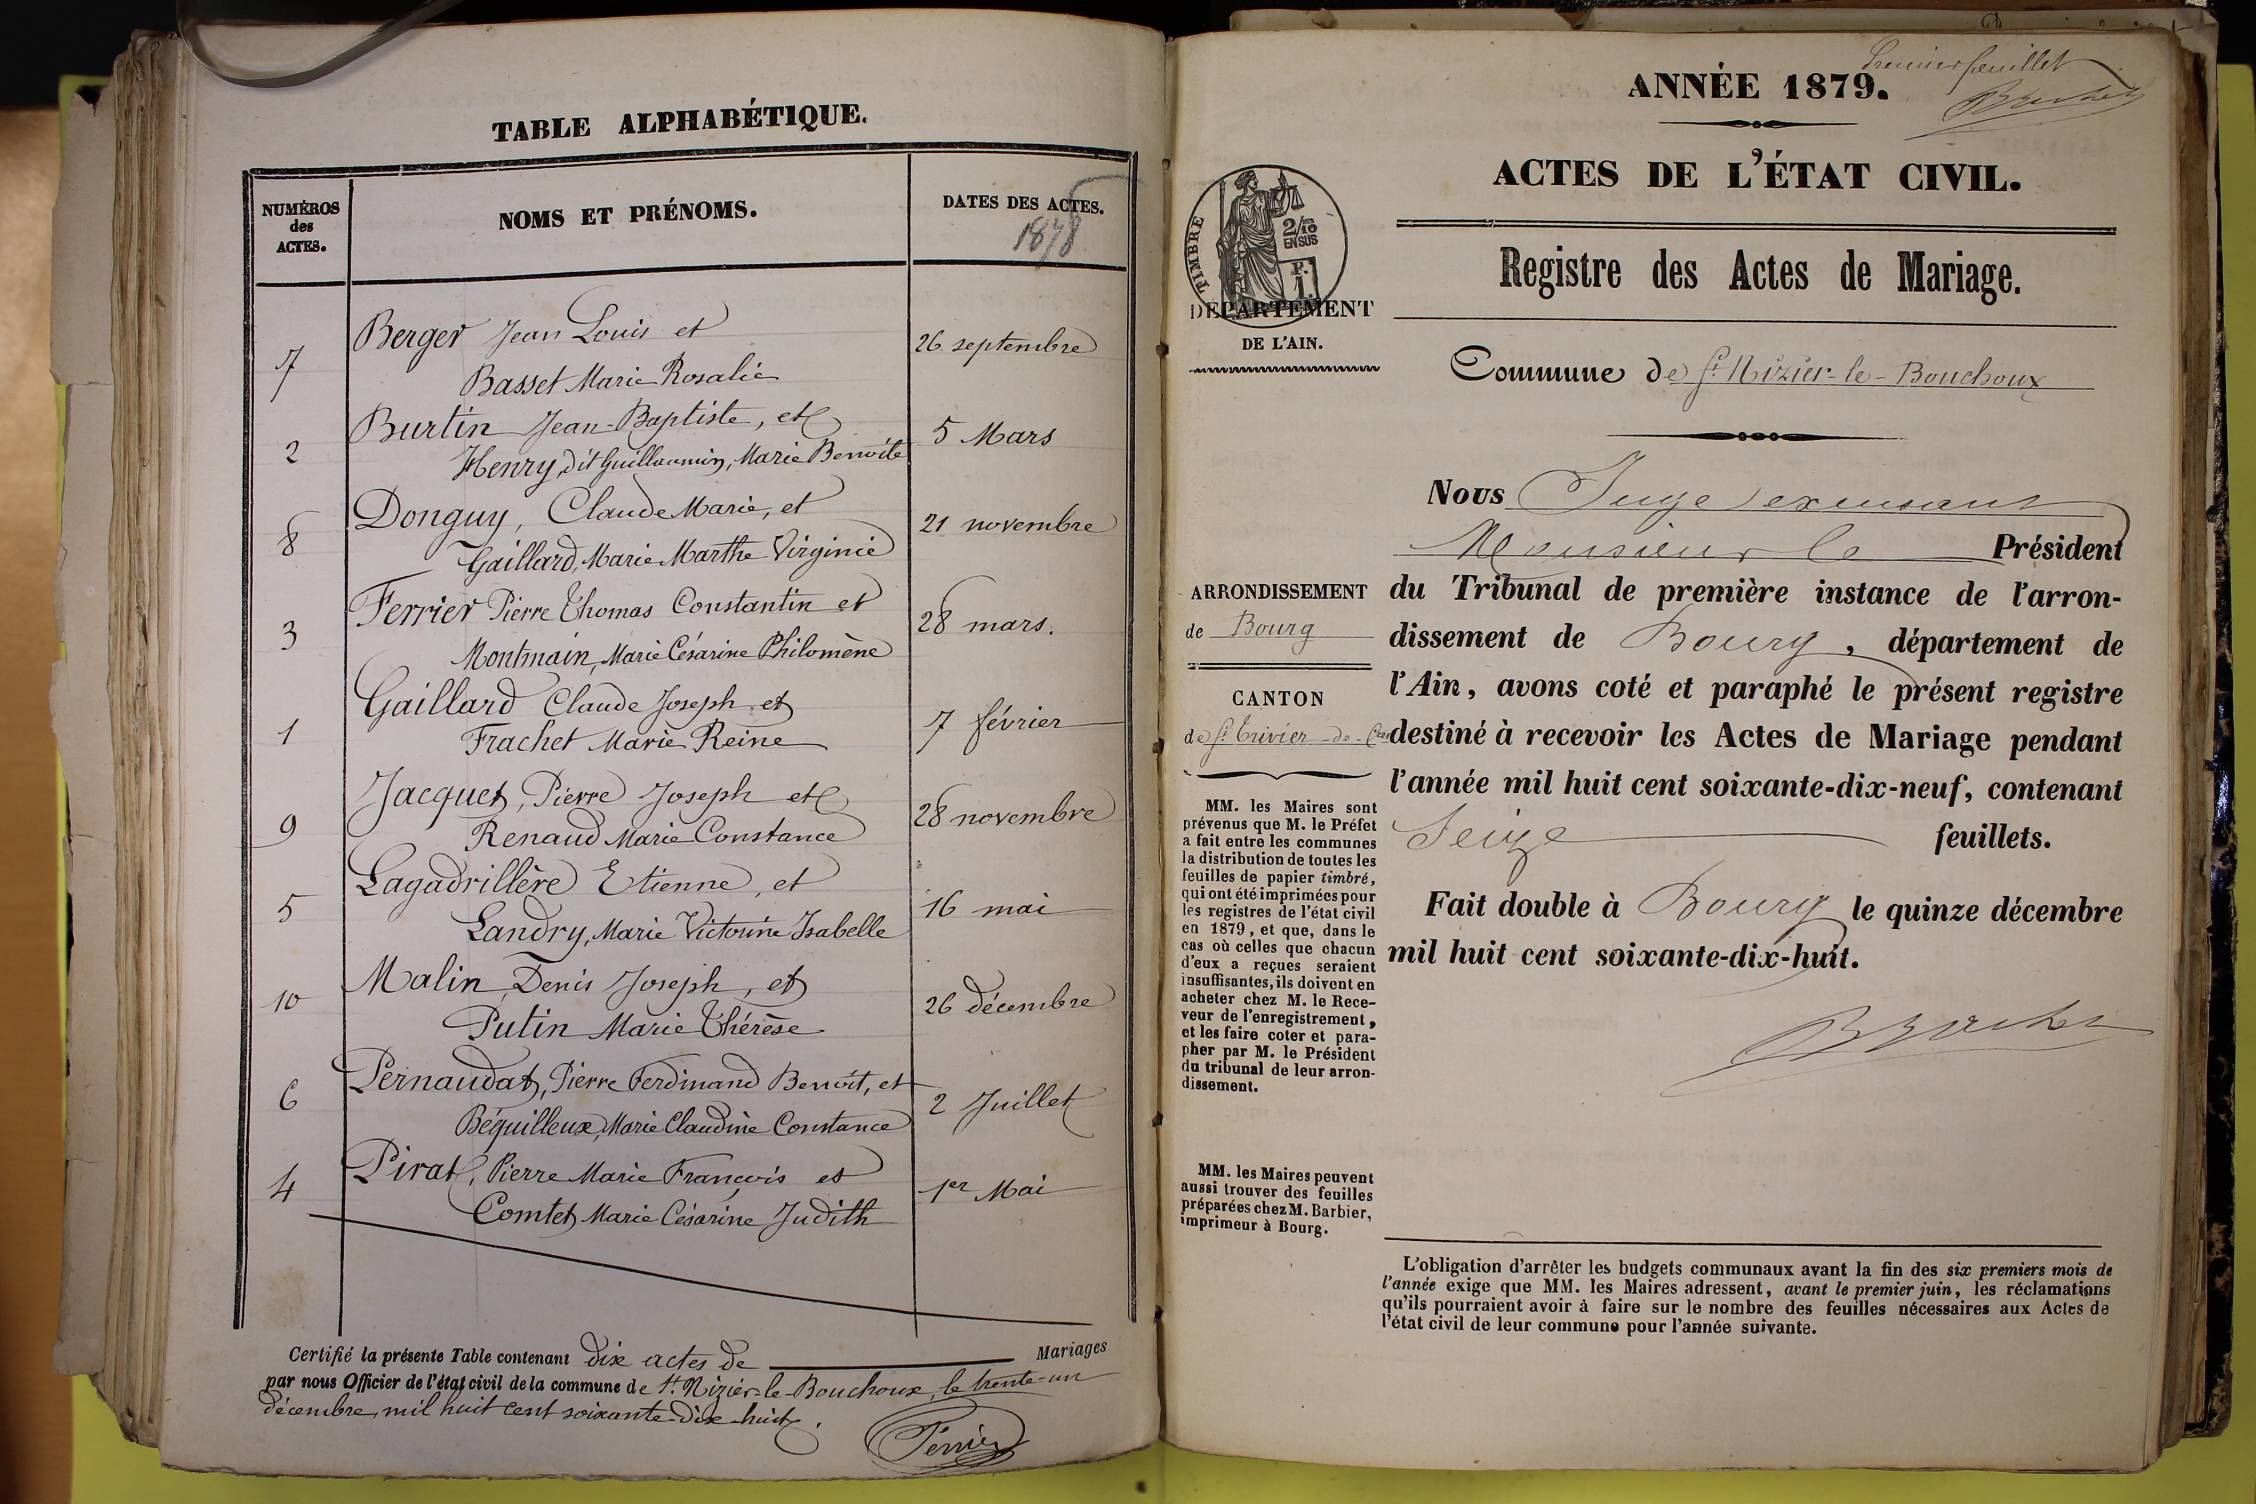 TABLE ALPHABÉTIQUE.
NUMÉROS
des
ACTES.
NOMS ET PRÉNOMS.
DATES DES ACTES.
1878
7
Berger Jean Louis et
Basset Marie Rosalie
26 septembre
2
Burtin Jean-Baptiste, et
Henry, dit Guillaumin, Marie Benoîte
5 Mars
8
Donguy, Claude Marie, et
Gaillard, Marie Marthe Virginie
21 novembre
3
Ferrier Pierre Thomas Constantin et
Montmain, Marie Césarine Philomène
28 mars.
1
Gaillard Claude Joseph et
Frachet Marie Reine
7 février
9
Jacquet, Pierre Joseph et
Renaud Marie Constance
28 novembre
5
Lagadrillère Etienne, et
Landry, Marie Victorine Isabelle
16 mai
10
Malin, Denis Joseph, et
Putin Marie Thérèse
26 décembre
6
Pernaudat, Pierre Ferdinand Benoît, et
Béquilleux, Marie Claudine Constance
2 Juillet
4
Pirat, Pierre Marie François et
Comtet Marie Césarine Judith
1er Mai
Certifié la présente Table contenant dix actes de Mariages
par nous Officier de l'état civil de la commune de St. Nizier-le-Bouchoux, le trente-un
décembre, mil huit cent soixante-dix-huit.
Perrier
Premier feuillet
ANNÉE 1879.
ACTES DE L'ÉTAT CIVIL.
Registre des Actes de Mariage.
TIMBRE
2/10
EN SUS
F.
1.
DÉPARTEMENT
DE L'AIN.
Commune de St. Nizier-le-Bouchoux
Nous Juge excusant
Monsieur le Président
du Tribunal de première instance de l'arron-
dissement de Bourg, département de
l'Ain, avons coté et paraphé le présent registre
destiné à recevoir les Actes de Mariage pendant
l'année mil huit cent soixante-dix-neuf, contenant
Seize feuillets.
Fait double à Bourg le quinze décembre
mil huit cent soixante-dix-huit.
ARRONDISSEMENT
de Bourg
CANTON
de St. Trivier-de-Cour
MM. les Maires sont
prévenus que M. le Préfet
a fait entre les communes
la distribution de toutes les
feuilles de papier timbré,
qui ont été imprimées pour
les registres de l'état civil
en 1879, et que, dans le
cas où celles que chacun
d'eux a reçues seraient
insuffisantes, ils doivent en
acheter chez M. le Rece-
veur de l'enregistrement,
et les faire coter et para-
pher par M. le Président
du tribunal de leur arron-
dissement.
MM. les Maires peuvent
aussi trouver des feuilles
préparées chez M. Barbier,
imprimeur à Bourg.
L'obligation d'arrêter les budgets communaux avant la fin des six premiers mois de
l'année exige que MM. les Maires adressent, avant le premier juin, les réclamations
qu'ils pourraient avoir à faire sur le nombre des feuilles nécessaires aux Actes de
l'état civil de leur commune pour l'année suivante.